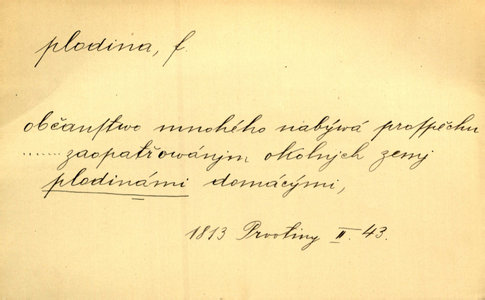 plodina, f.
občanſtwo mnohého nabýwá proſpěchu
...... zaopatřowánjm okolnjch zemj
plodinámi domácými,
1813 Prvotiny II. 43.